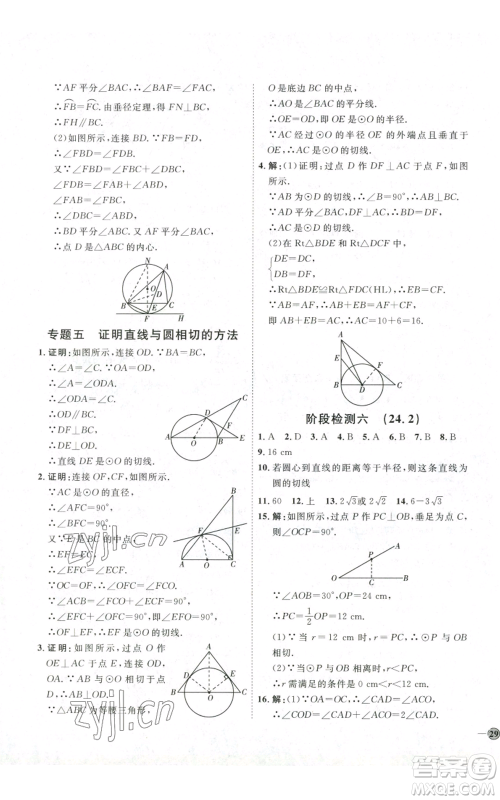 ∵AF平分∠BAC,∴∠FAB=∠FAC.
∴FB=FC.由垂径定理,得 FN⊥BC.
∴FH∥BC.
(2)如图所示,连接 BD.∵AF 平分
∠BAC,∴∠FAC=∠FAB.
又∵∠FAC=∠FBC,
∴∠FAB=∠FBC.
又∵BF=DF,∴∠FBD=∠FDB.
∴∠FAB+∠ABD=
∠FBC+∠CBD.
∴∠ABD=∠CBD.
又∵∠BAD=∠CAD,
∴点 D 是△ABC 的内心.
专题五 证明直线与圆相切的方法
1.证明:如图所示,连接 OD.∵BA=BC,
∴∠A=∠C.
∵OD=OA,
∴∠A=∠ODA.
∴∠ODA=∠C.
∴OD∥BC.
∵DE⊥BC,
∴DE⊥OD.
∴直线 DE 是⊙O 的切线.
2.证明:如图所示,连接 OF.
∵AC 是⊙O 的直径,
∴∠AFC=90°.
∴∠BFC=90°.
∴EF=EC.
∴∠EFC=∠ECF.
∵OC=OF,∴∠OFC=∠OCF.
∴∠OFE=90°.
∴OF⊥EF.∴EF 是⊙O 的切线.
3.证明:如图所示,过点 O 作
OE⊥AC 于点 E,连接 OD,
OA.
∵AB 与⊙O 相切于点 D,
∴AB⊥OD.
∵△ABC 为等腰三角形,
O 是底边 BC 的中点,
∴AO 是∠BAC 的平分线.
∴OE=OD,即 OE 是⊙O 的半径.
∵AC 经过⊙O 的半径 OE 的外端点且垂直
于OE,∴AC 是⊙O 的切线.
4.解:(1)证明:过点 D 作 DF⊥AC 于点 F,如
图所示.
∵AB 为⊙D 的切线,∴∠B=90°,∴AB⊥BC.
∵AD 平分∠BAC,DF⊥AC,∴BD=DF.
∴AC 是⊙D 的切线.
(2)在 Rt△BDE 和 Rt△FDC 中,
∵{BD=DF,
DE=DC,
∴Rt△BDE≌Rt△FDC(HL),∴EB=FC.
∵AB=AF,∴AB+EB=AF+FC,
即 AB+EB=AC,∴AC=10+6=16.
阶段检测六 (24.2)
1.A 2.D 3.A 4.C 5.A 6.C 7.B 8.B
9.16 cm
10.若圆心到直线的距离等于半径,则这条直线为
圆的切线
11.60 12.上 13.2√3或2√2 14.6-3√3
15.解:如图所示,过点 C 作 PC⊥OB,垂足为点 C,
则∠OCP=90°.
∵∠AOB=30°,OP=24 cm,
∴PC=1/2 OP=12 cm.
(1)∵r=12 cm,
∴r=PC,∴⊙P 与 OB
相切.
(2)当⊙P 与 OB 相离时,r<PC,
∴r 需满足的条件是 0 cm<r<12 cm.
16.解:(1)∵OA=OC,∴∠ACO=∠A.
29
zyjl.cn
zyjl.cn
答案圈